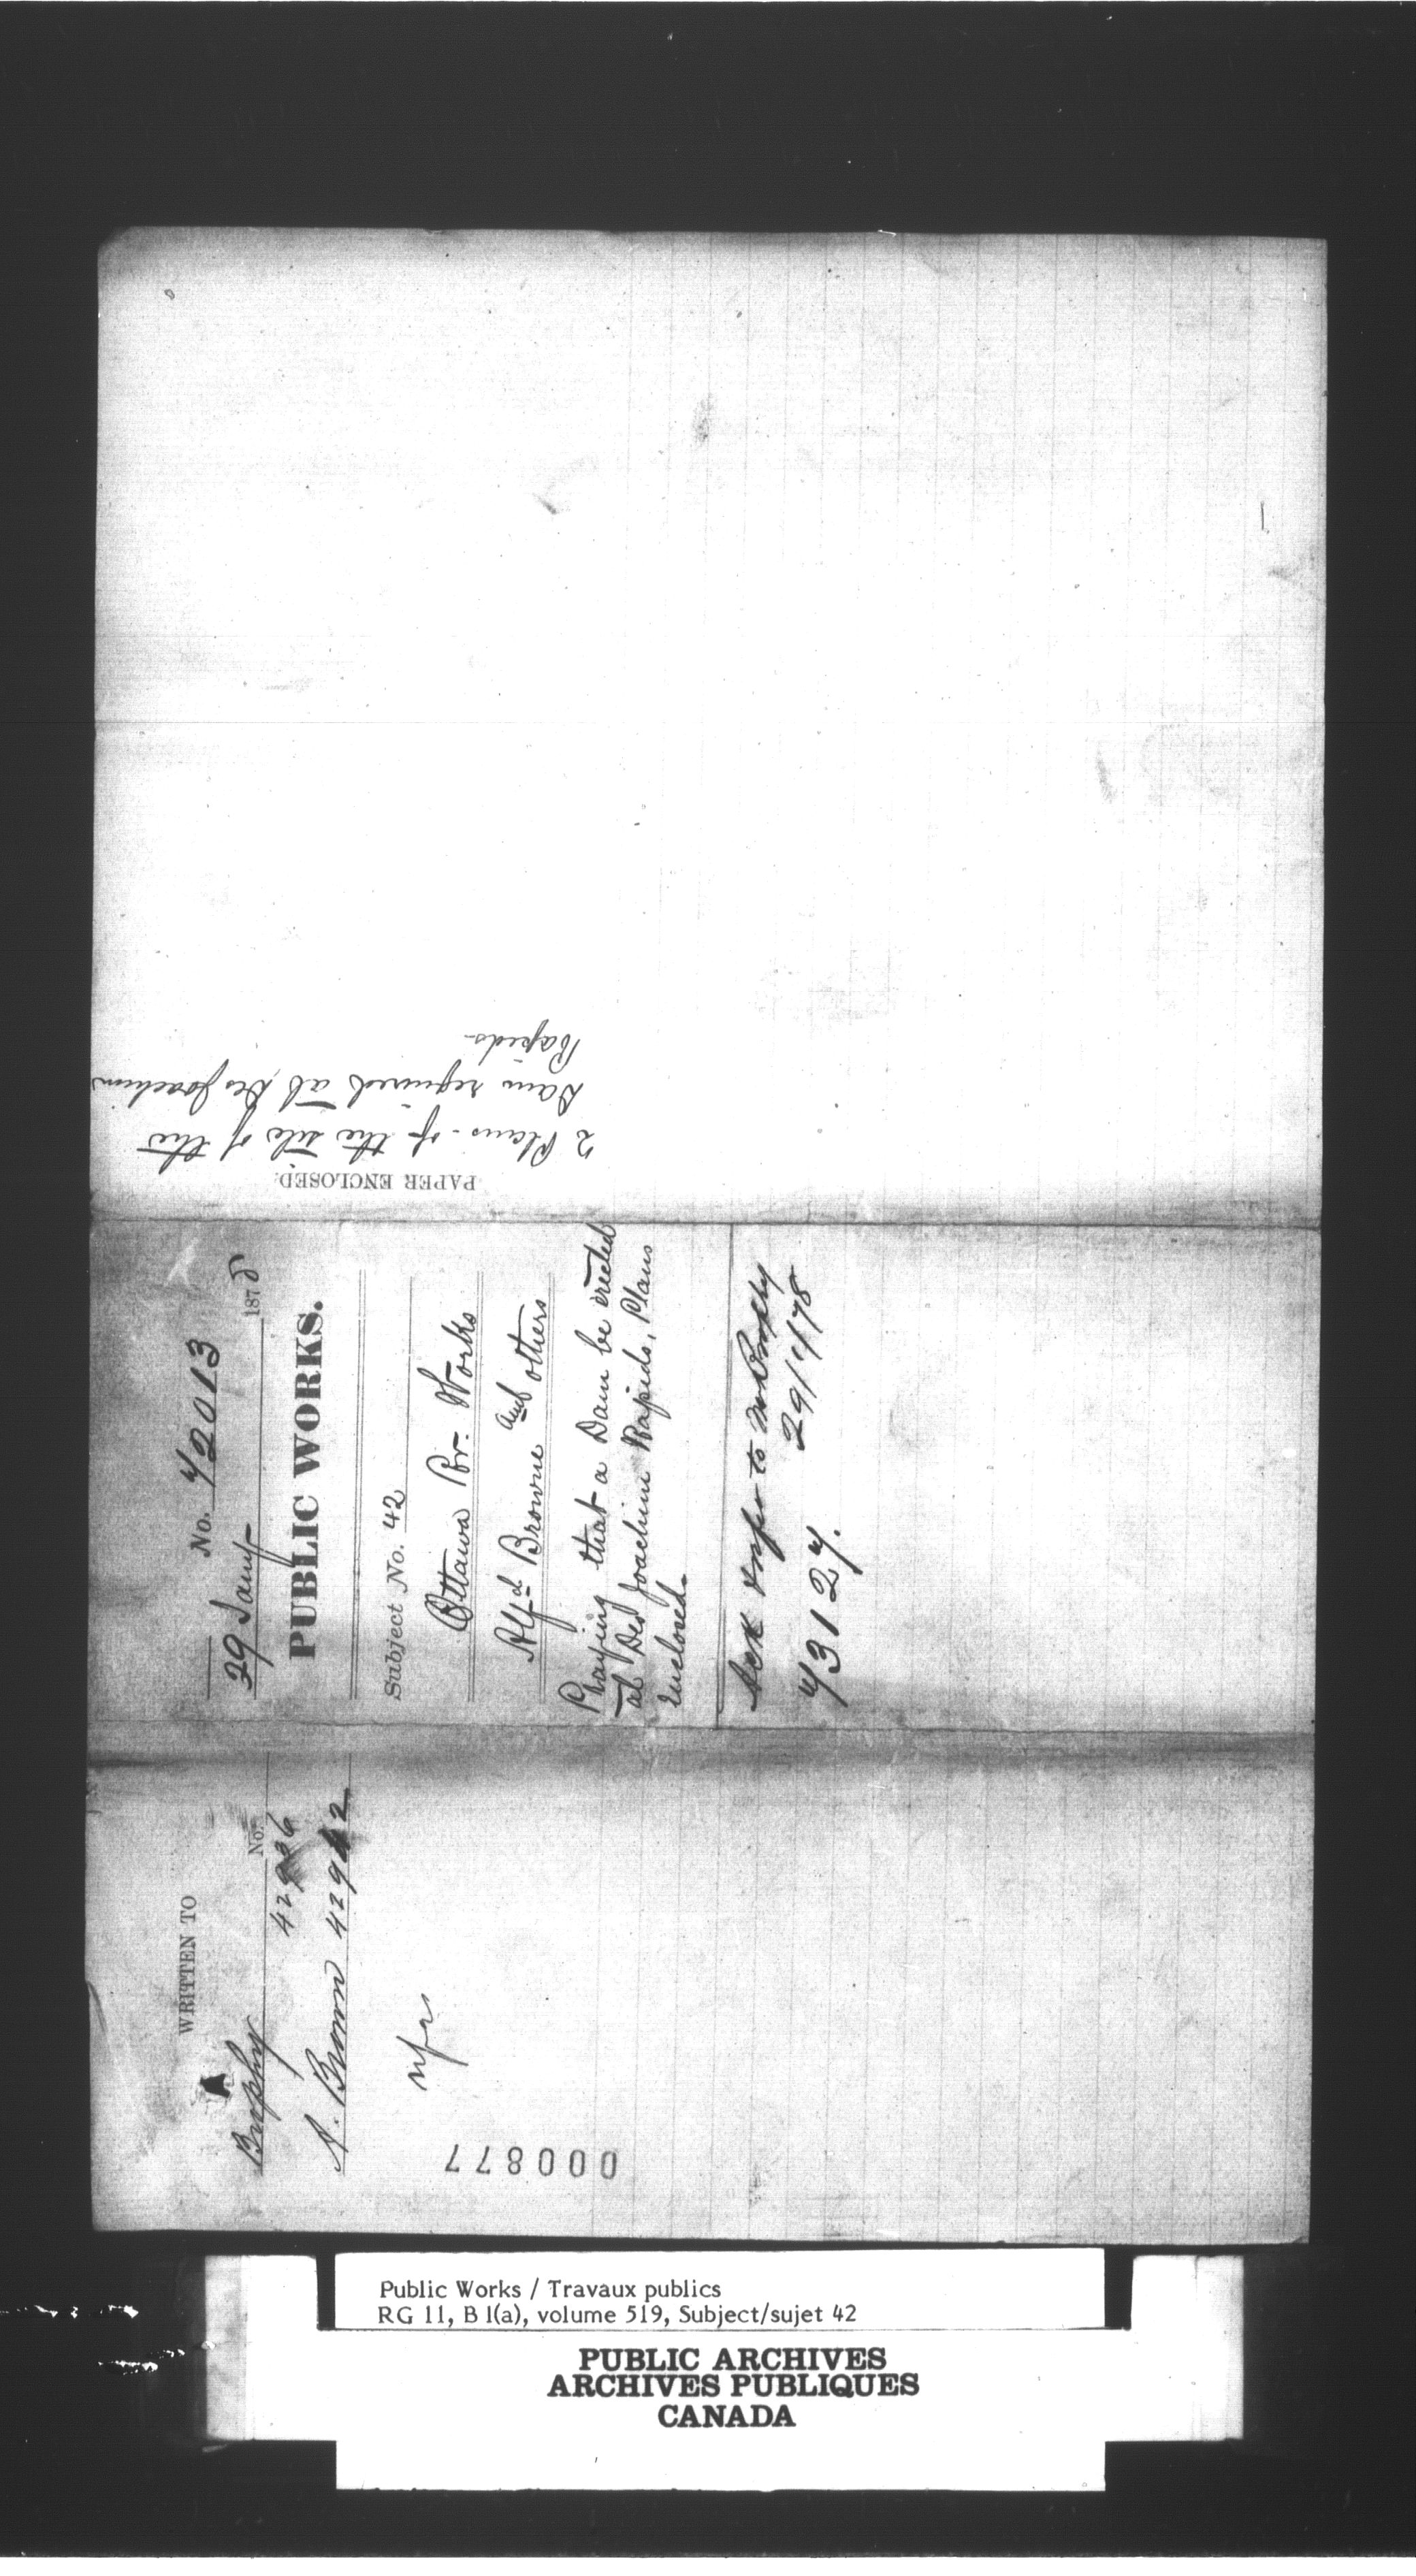 PAPER ENCLOSED.
2 Plans of the site of the
Dam required at Des Joachim
Rapids
No. 72013
29 Jany 1878
PUBLIC WORKS.
Subject No. 42
Ottawa Rr. Works
Alfd Browne and others
Praying that a Dam be erected
at Des Joachim Rapids, Plans
enclosed.
Ack & refer to Mr Brophy
29/1/78
73127.
WRITTEN TO
No.
Brophy
A. Brown
000877
Public Works / Travaux publics
RG 11, B 1(a), volume 519, Subject/sujet 42
PUBLIC ARCHIVES
ARCHIVES PUBLIQUES
CANADA